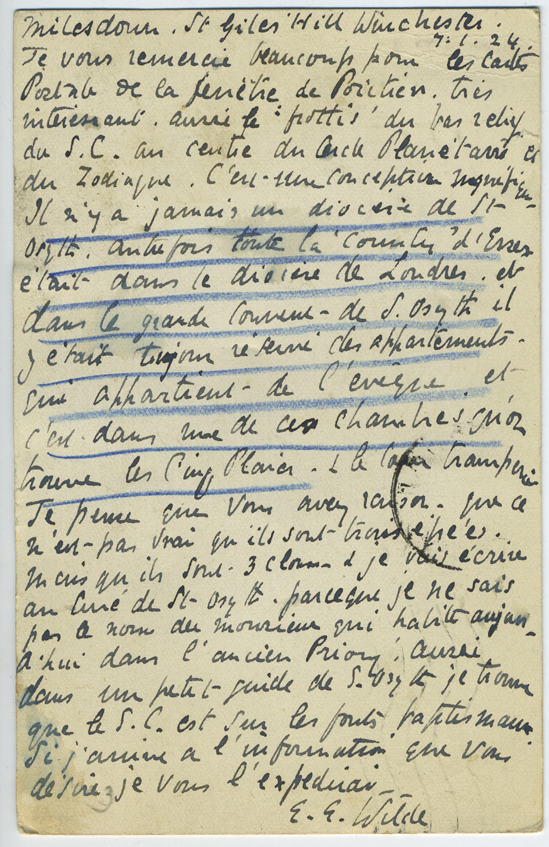 Milesdown. St Giles Hill Winchester.
7.1.24.
Je vous remercie beaucoup pour les cartes
Postale de la fenêtre de Poictier. très
intéressant. aussi le "frottis" du bas relief
du S.C. au centre du Cercle Planétaris et
du Zodiaque. C'est une conception magnifique
Il n'y a jamais un diocèse de St-
Osyth. autrefois toute la "County" d'Essex
était dans le diocèse de Londres. et
dans le grande Couvent de S. Osyth il
y était toujour réservé des appartements-
qui appartient de l'évêque. et
c'est dans une de ces chambres qu'on
trouve les Cinq Plaies. & le
Je pense que vous avez raison. que ce
n'est pas vrai qu'ils sont trois épées.
mais qu'ils sont 3 clous & je vais écrire
au Curé de St Osyth. parceque je ne sais
pas le nom du monsieur qui habite aujour-
d'hui dans l'ancien Priory. aussi
dans un petit guide de S. Osyth je trouve
que le S.C. est sur les fonts baptismaux
Si j'arrive a l'information que vous
désire je vous l'expedirai
E. E. Wilde